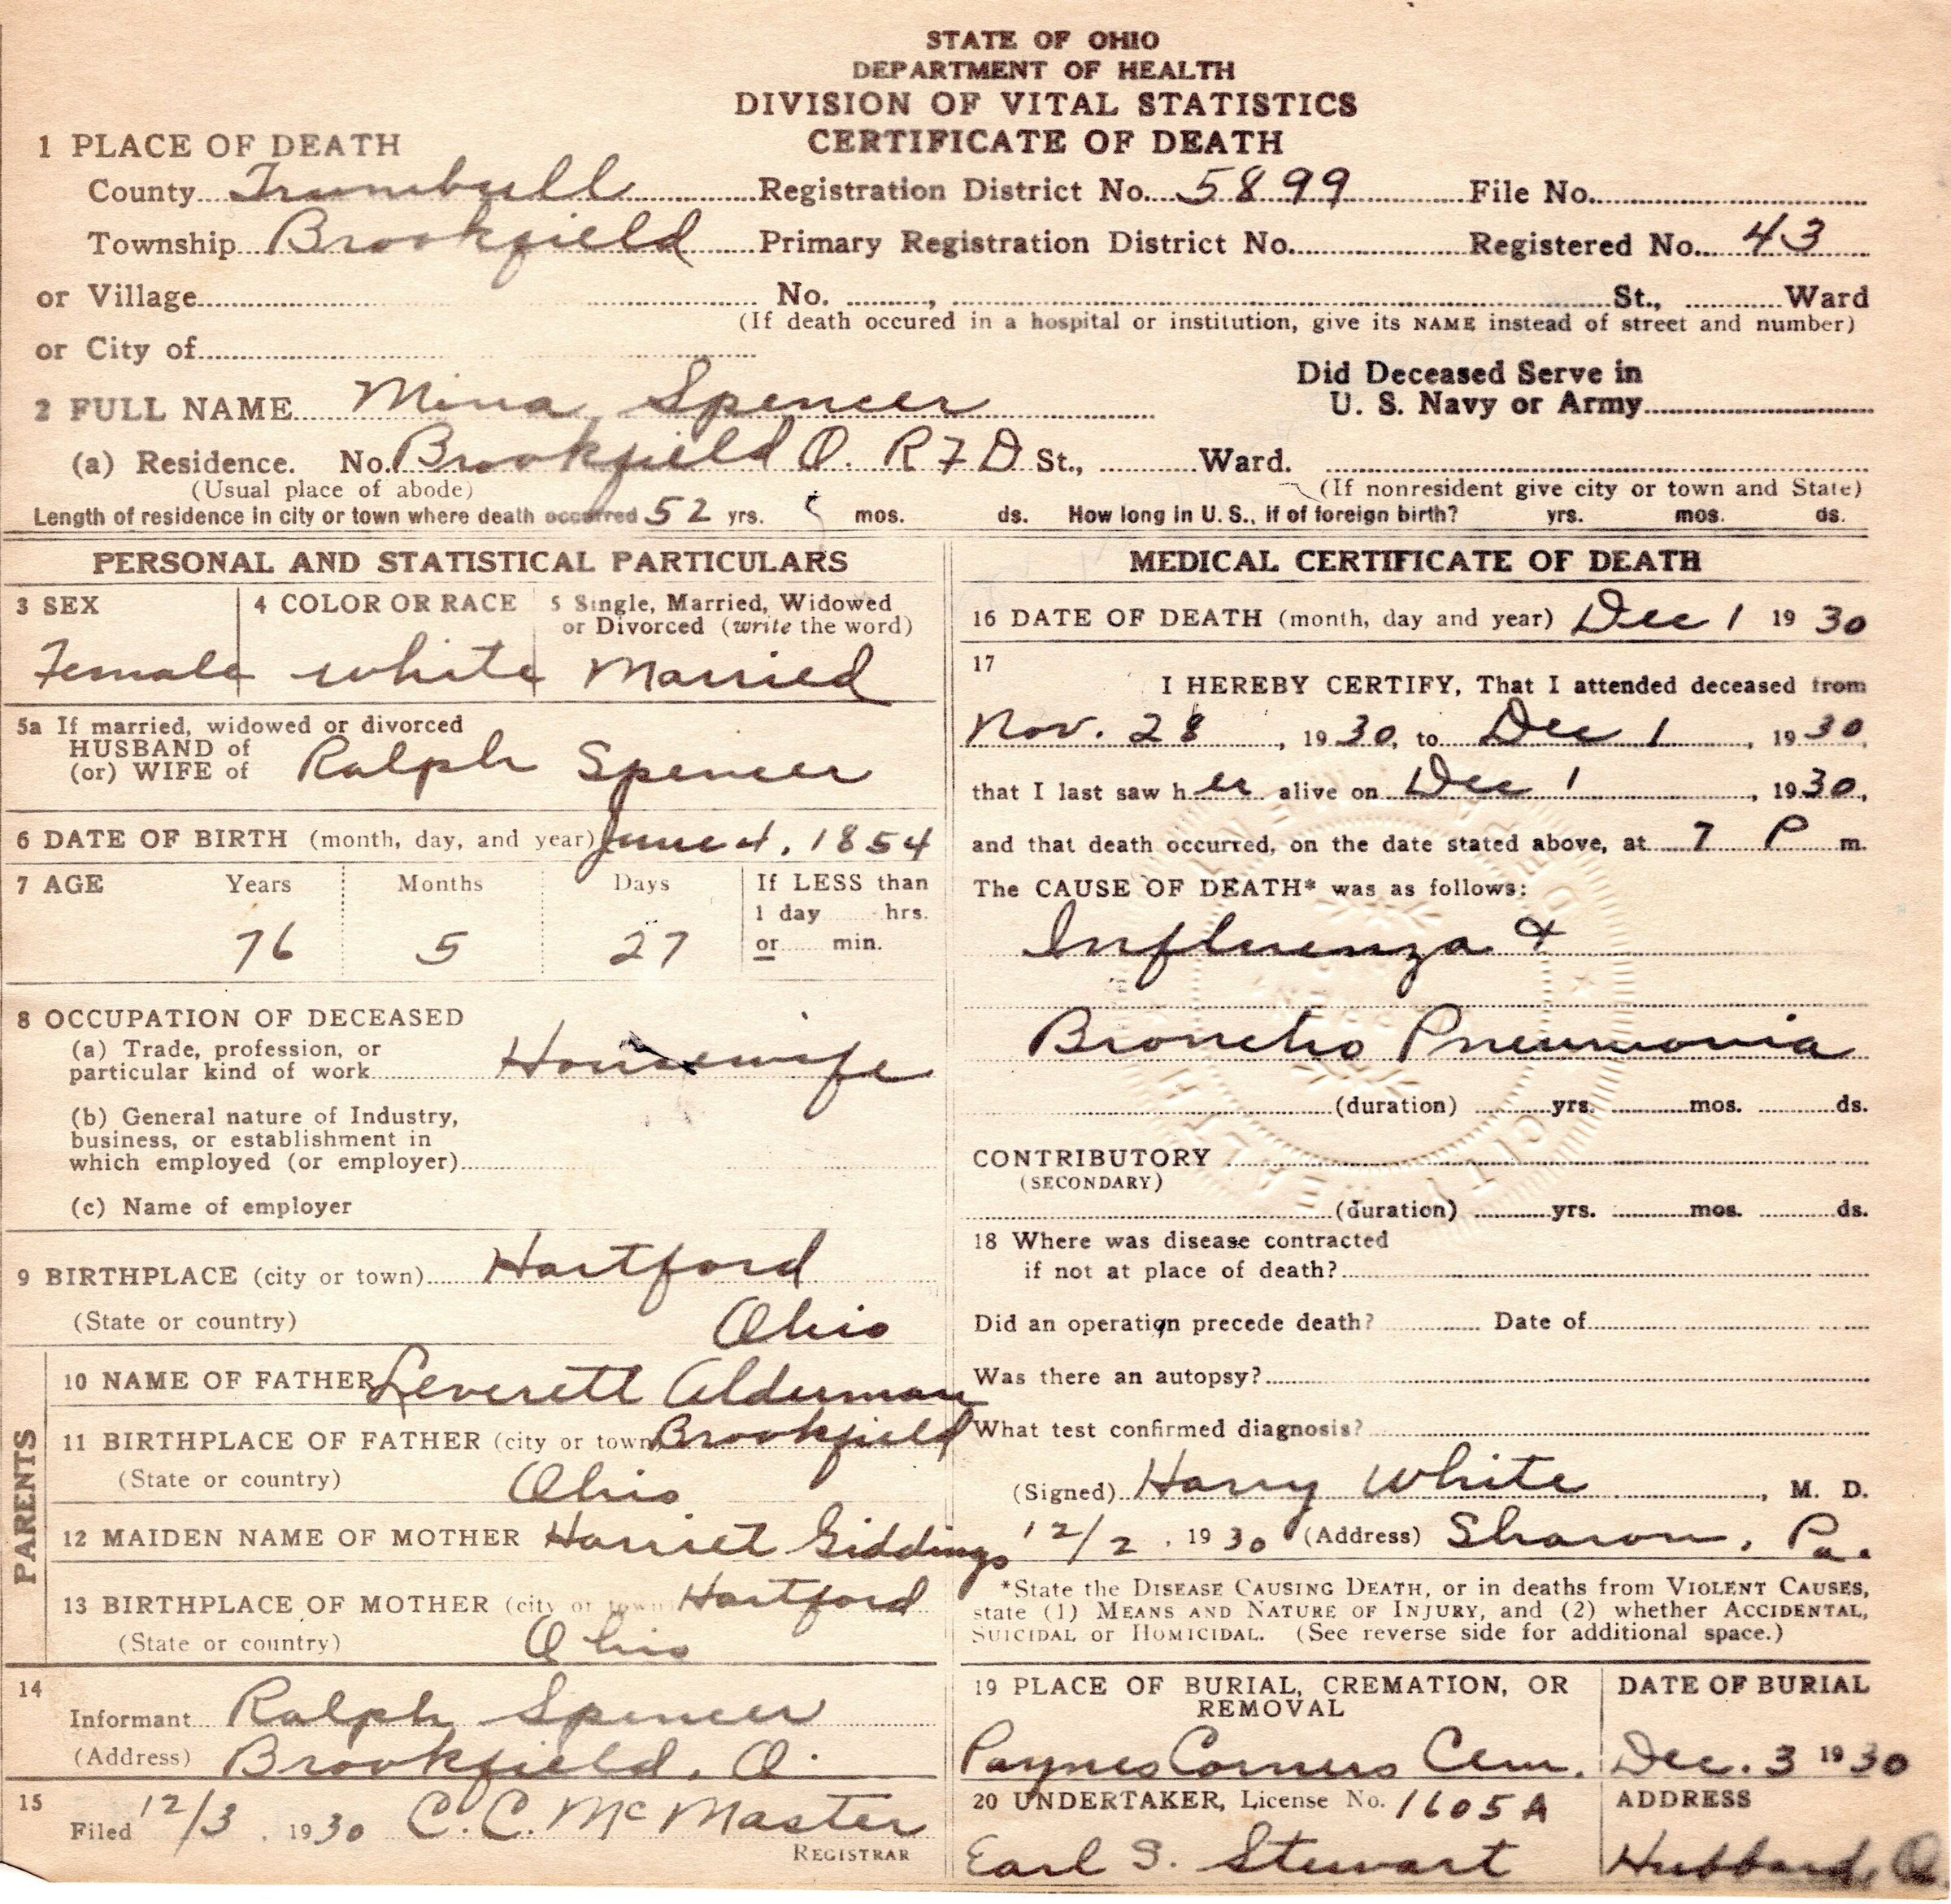 STATE OF OHIO
DEPARTMENT OF HEALTH
DIVISION OF VITAL STATISTICS
CERTIFICATE OF DEATH
1 PLACE OF DEATH
County Trumbull Registration District No. 5899 File No.
Township Brookfield Primary Registration District No. Registered No. 43
or Village No. , St., Ward
(If death occured in a hospital or institution, give its NAME instead of street and number)
or City of
Did Deceased Serve in
U. S. Navy or Army
2 FULL NAME Mina Spencer
(a) Residence. No. Brookfield O. R F D St., Ward.
(Usual place of abode) (If nonresident give city or town and State)
Length of residence in city or town where death occurred 52 yrs. mos. ds. How long in U. S., if of foreign birth? yrs. mos. ds.
PERSONAL AND STATISTICAL PARTICULARS
3 SEX 4 COLOR OR RACE 5 Single, Married, Widowed
or Divorced (write the word)
Female white Married
5a If married, widowed or divorced
HUSBAND of
(or) WIFE of Ralph Spencer
6 DATE OF BIRTH (month, day, and year) June 4, 1854
7 AGE Years Months Days If LESS than
1 day hrs.
76 5 27 or min.
8 OCCUPATION OF DECEASED
(a) Trade, profession, or
particular kind of work Housewife
(b) General nature of Industry,
business, or establishment in
which employed (or employer)
(c) Name of employer
9 BIRTHPLACE (city or town) Hartford
(State or country) Ohio
PARENTS
10 NAME OF FATHER Leverett Alderman
11 BIRTHPLACE OF FATHER (city or town Brookfield
(State or country) Ohio
12 MAIDEN NAME OF MOTHER Harriet Giddings
13 BIRTHPLACE OF MOTHER (city or town Hartford
(State or country) Ohio
14
Informant Ralph Spencer
(Address) Brookfield, O.
15
Filed 12/3, 1930 C. C. McMaster
REGISTRAR
MEDICAL CERTIFICATE OF DEATH
16 DATE OF DEATH (month, day and year) Dec 1 1930
17
I HEREBY CERTIFY, That I attended deceased from
Nov. 28, 1930, to Dec 1, 1930,
that I last saw her alive on Dec 1, 1930,
and that death occurred, on the date stated above, at 7 P m.
The CAUSE OF DEATH* was as follows:
Influenza &
Broncho Pneumonia
(duration) yrs. mos. ds.
CONTRIBUTORY
(SECONDARY)
(duration) yrs. mos. ds.
18 Where was disease contracted
if not at place of death?
Did an operation precede death? Date of
Was there an autopsy?
What test confirmed diagnosis?
(Signed) Harry White, M. D.
12/2, 1930 (Address) Sharon, Pa.
*State the DISEASE CAUSING DEATH, or in deaths from VIOLENT CAUSES,
state (1) MEANS AND NATURE OF INJURY, and (2) whether ACCIDENTAL,
SUICIDAL or HOMICIDAL. (See reverse side for additional space.)
19 PLACE OF BURIAL, CREMATION, OR
REMOVAL
DATE OF BURIAL
Paynes Corners Cem. Dec. 3 1930
20 UNDERTAKER, License No. 1605A ADDRESS
Earl S. Stewart Hubbard, O